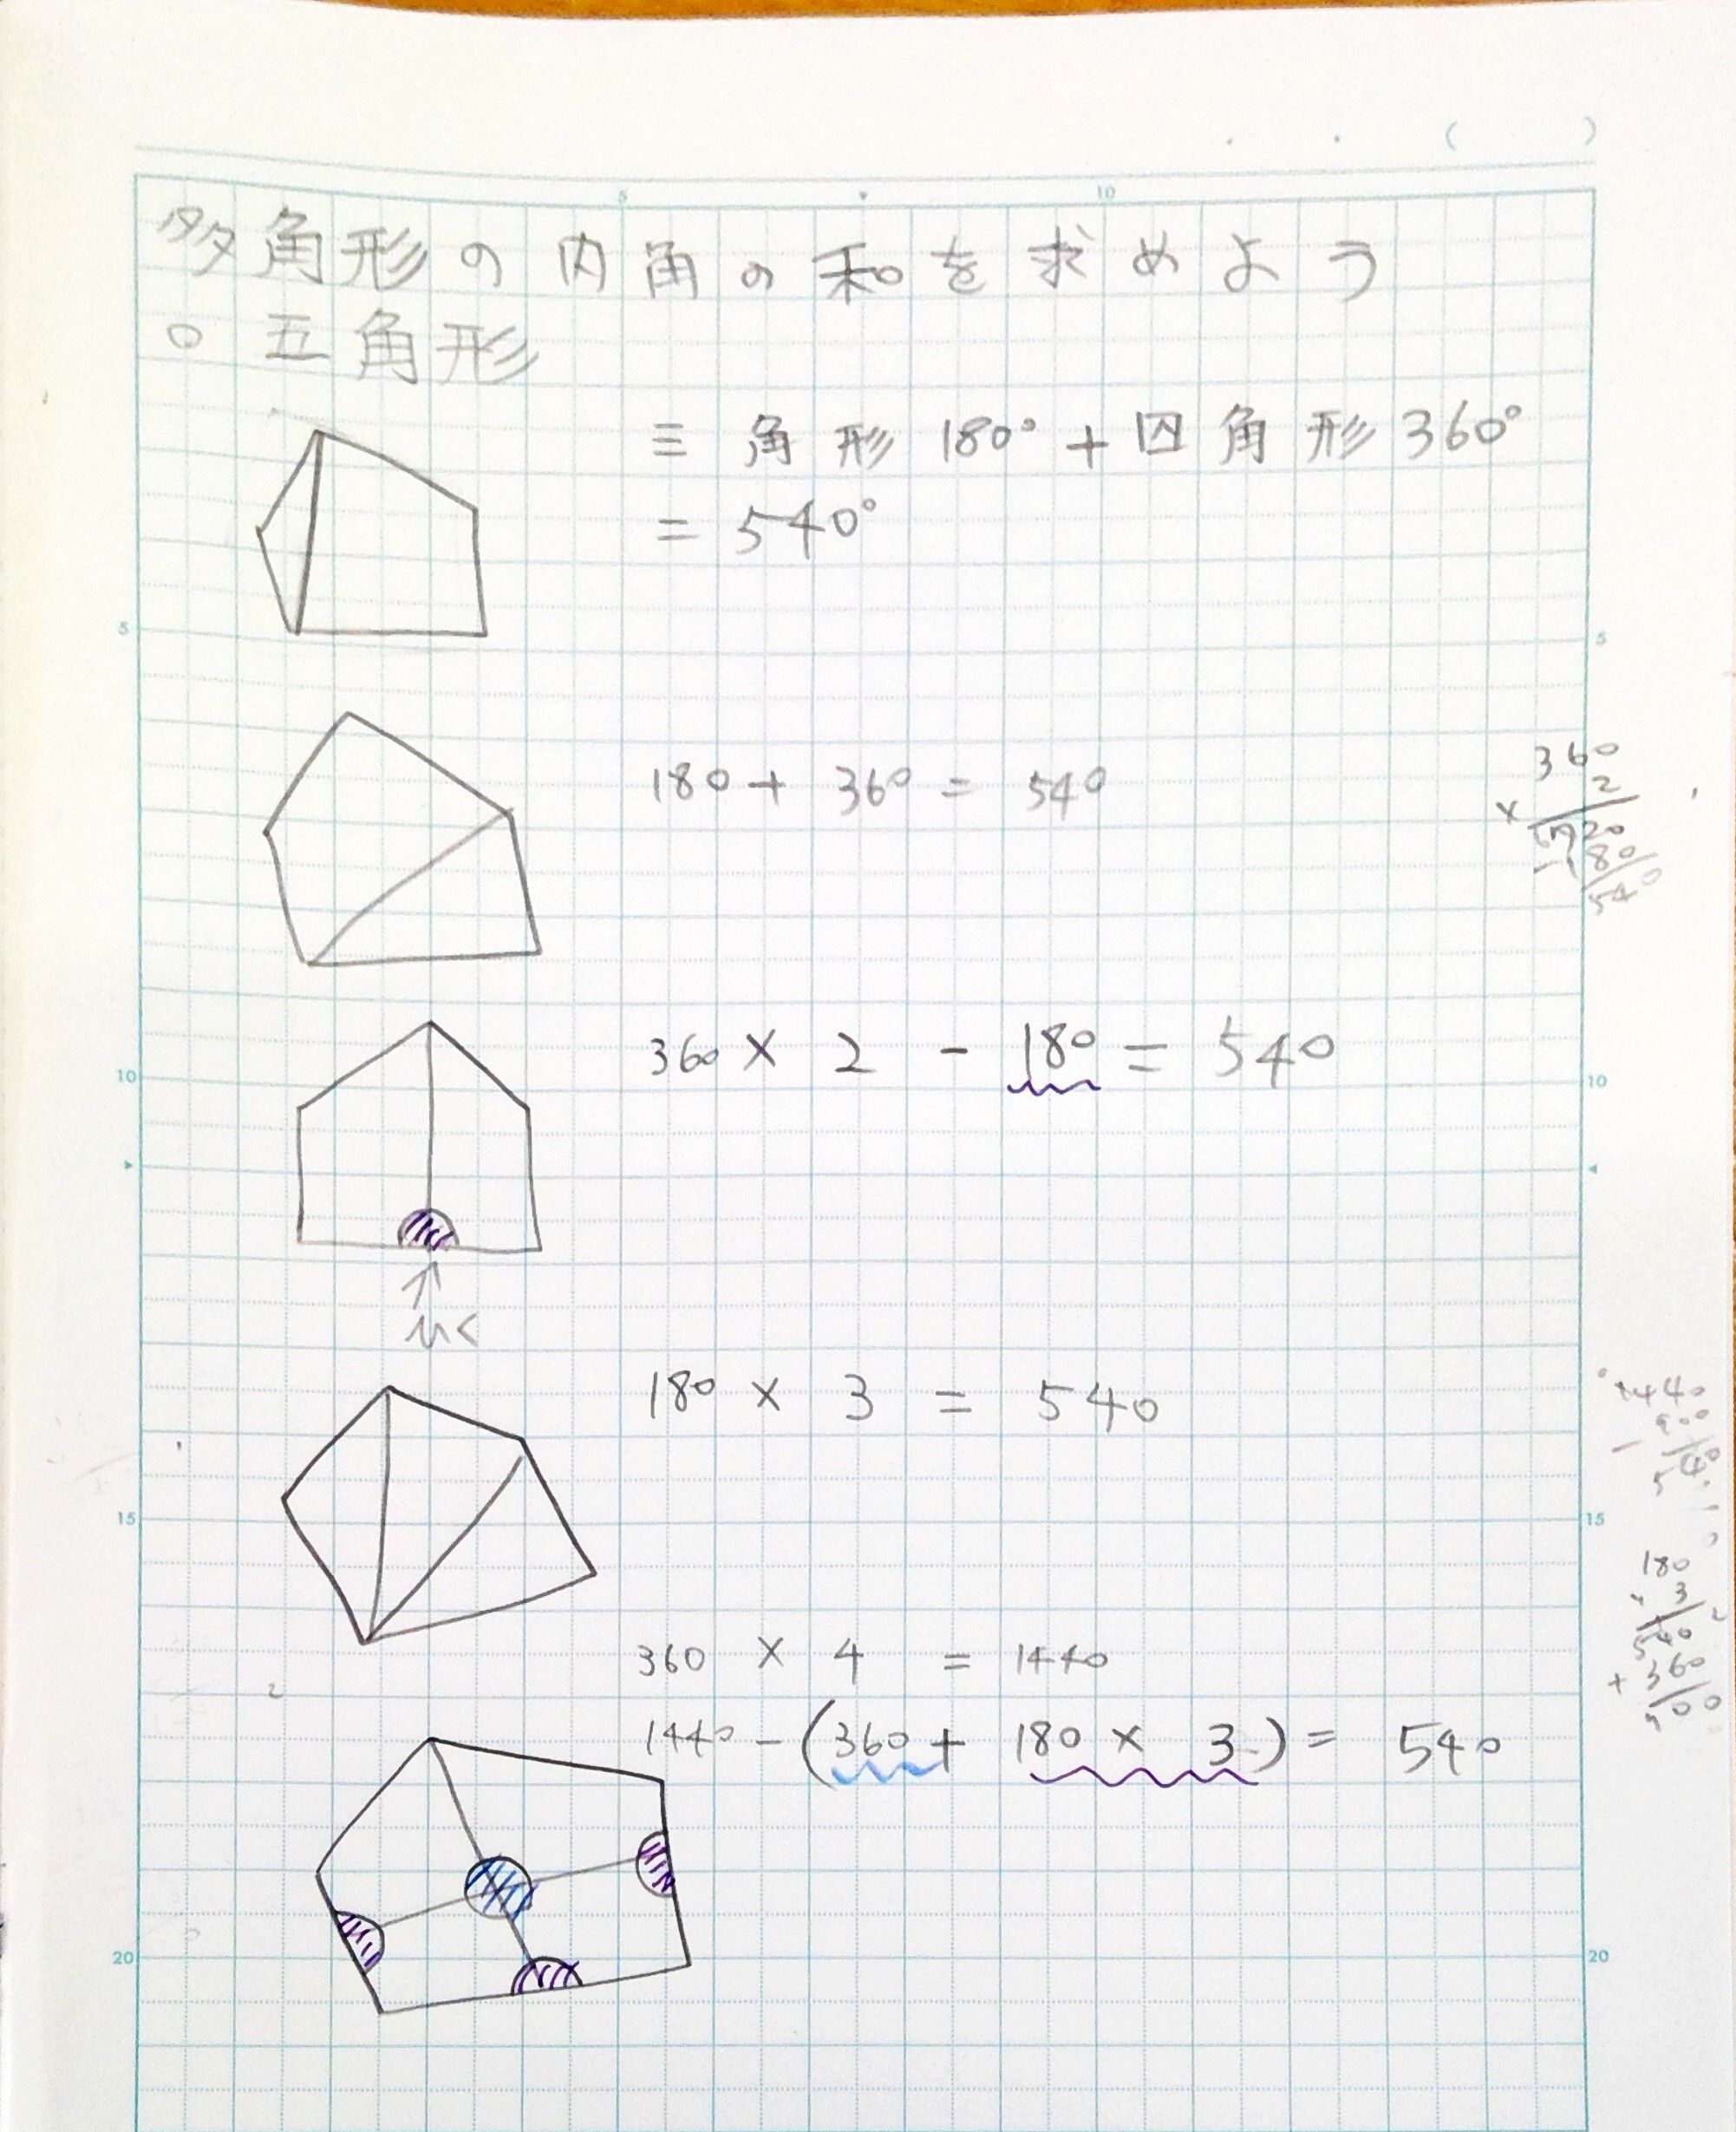 ( )
5 10
多角形の内角の和を求めよう
○ 五角形
三角形 180° + 四角形 360°
= 540°
5 5
180 + 360 = 540
360
× 2
720
- 180
540
360 × 2 - 180 = 540
10 10
↑
ひく
180 × 3 = 540
1440
- 900
540
15 15
180
× 3
540
+ 360
900
360 × 4 = 1440
1440 - (360 + 180 × 3) = 540
20 20